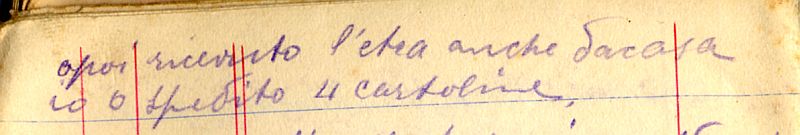 opoi ricevuto l'etra anche dacasa
io o spedito 4 cartoline,